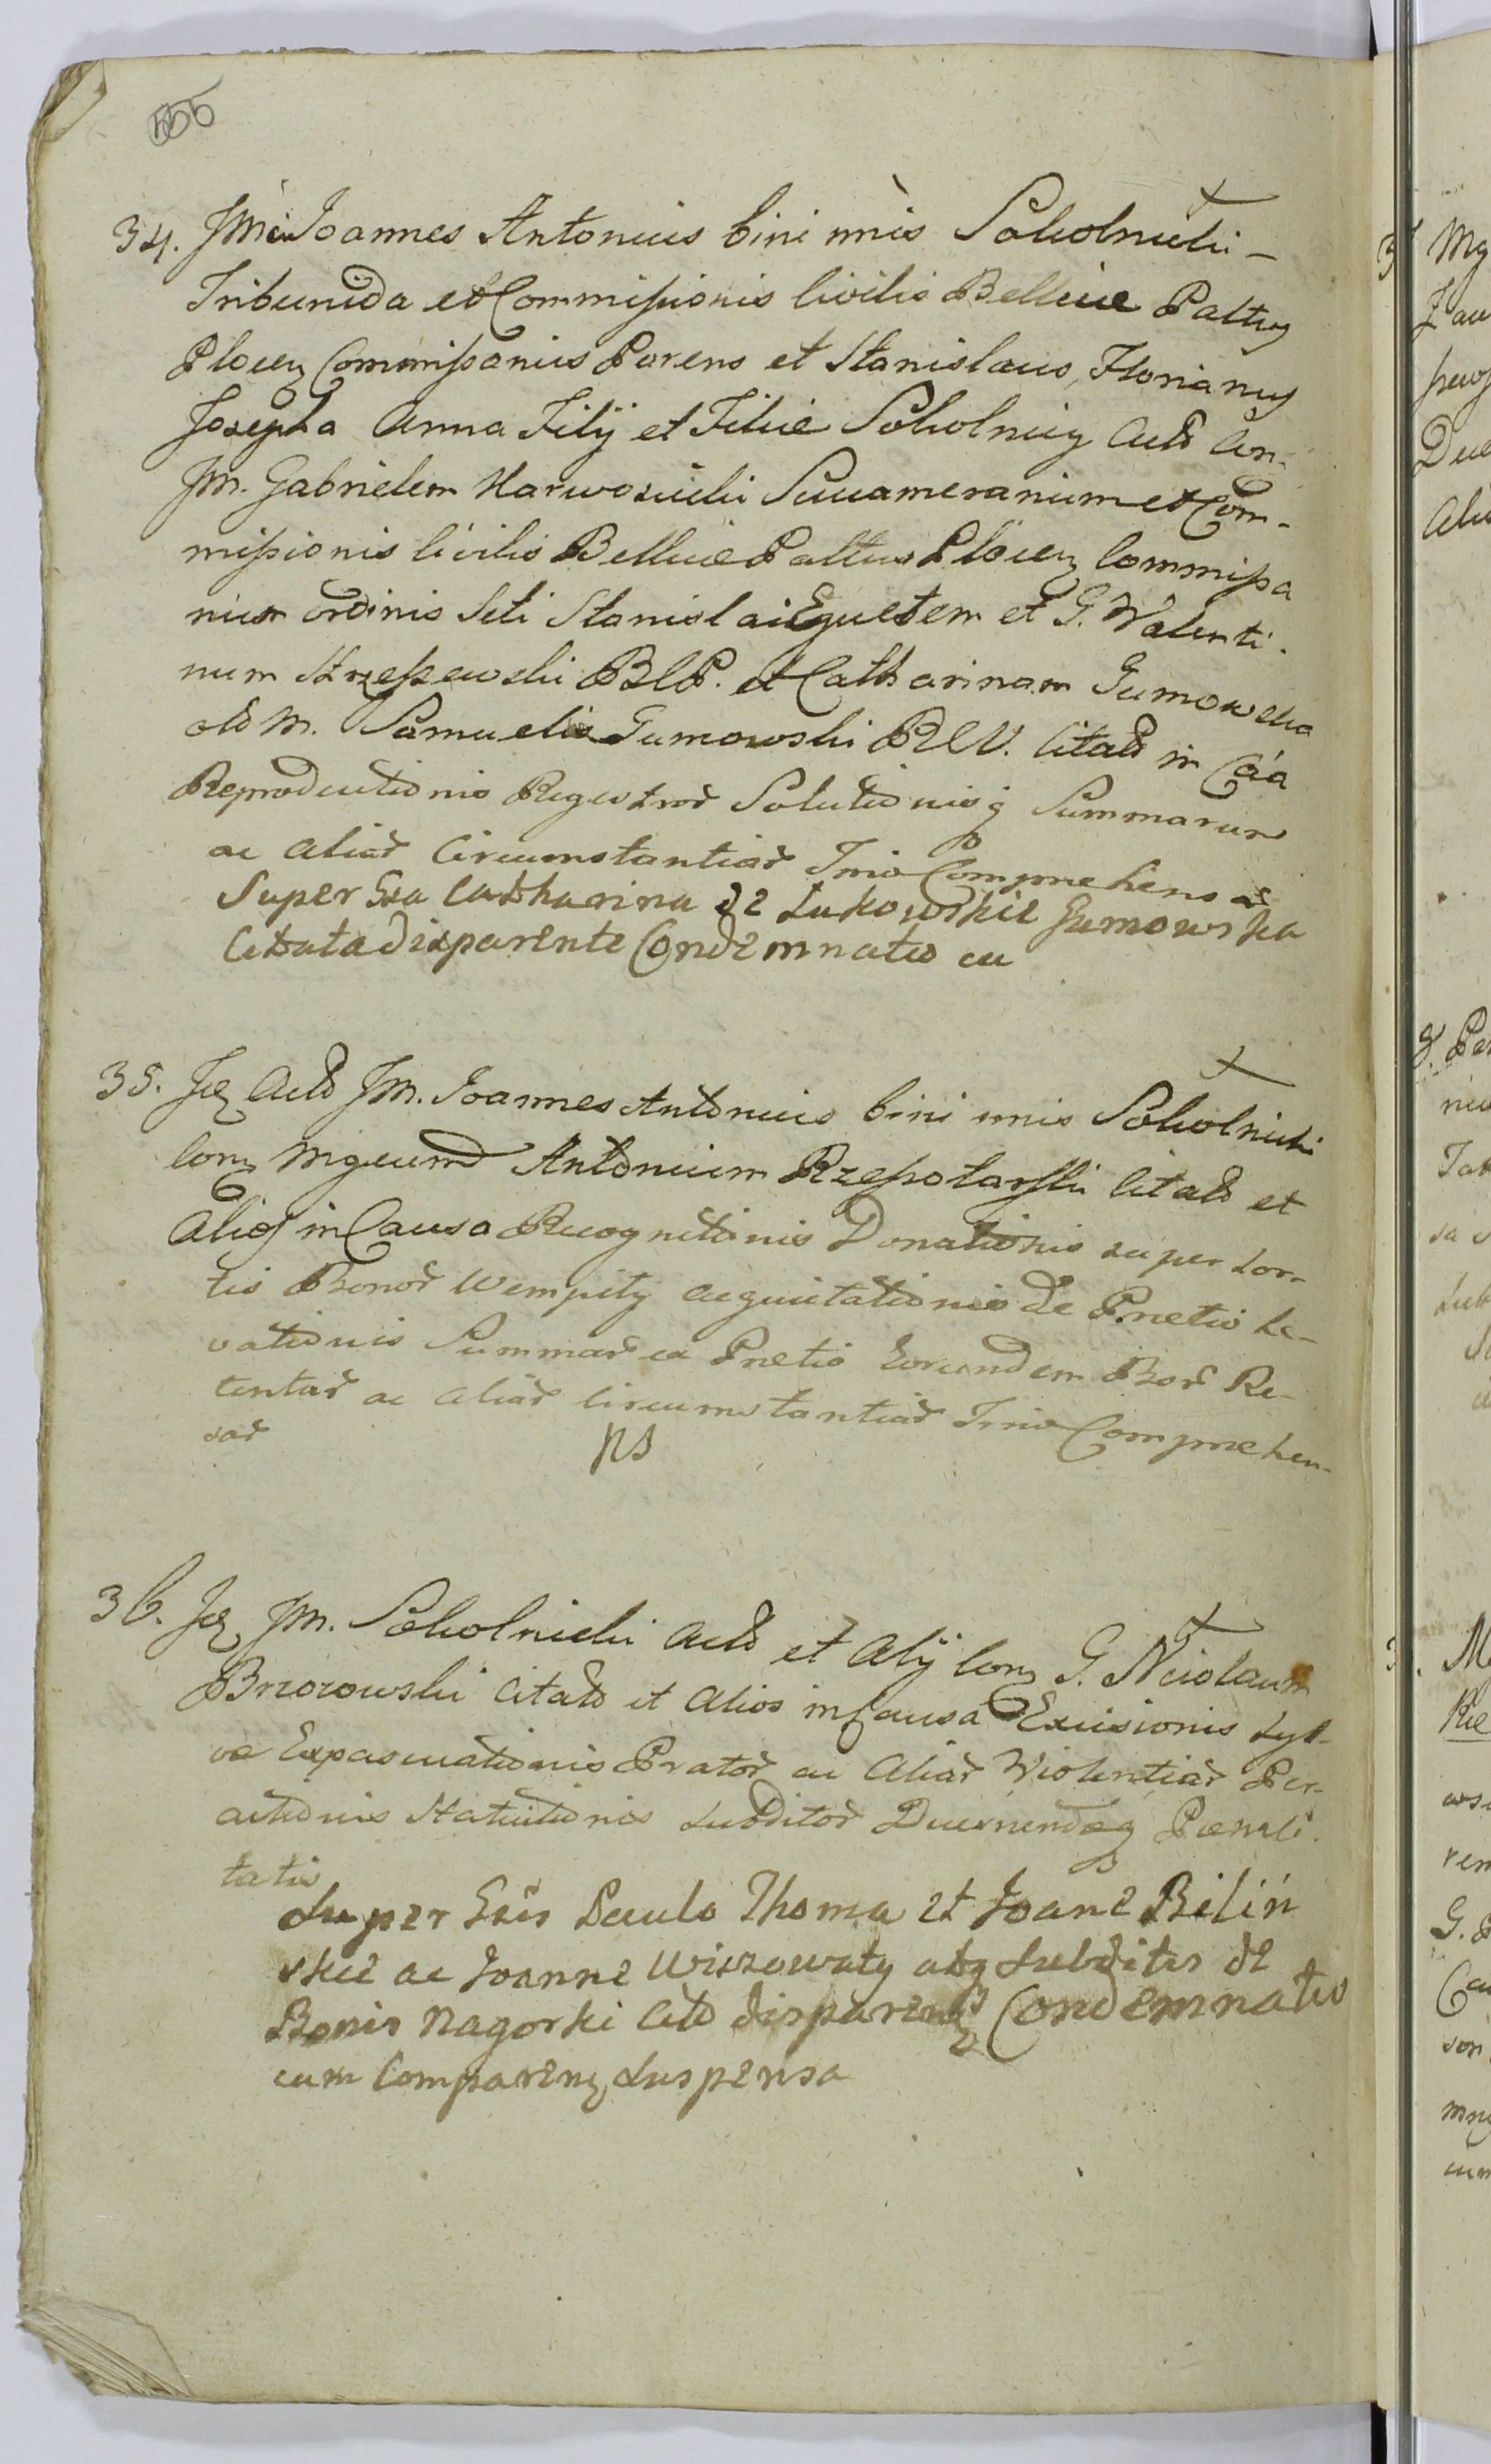 34. JMci Joannes Antonius bini nnis Sokolnicki
Tribunida et Commissionis Civilis Bellicæ Pattus
Plocen Commissarius Parens et Stanislaus, Florianus
Josepha Anna Filij et Filiæ Sokolnicy Acto Con
JM. Gabrielem Karwosiecki Succamerarium et Com-
missionis Civilis Bellicæ Pattus Plocen Commissa
rium ordinis Scti Stanislai Equetem et G. Valenti-
num Strzeszewski BCP. et Catharinam Gumowska
olo M. Samuelis Gumowski RCV. Citato in Caa
Reproductionis Regestror Solutionisq Summarum
ac aliar Circumstantiar Trio Comprehensar
Super Gsa Catharina de Łukowskie Gumowska
Citata disparente Condemnatio ea
35. Jez Acto JM. Joannes Antonius bini nnis Sokolnicki
Conz Mgcum Antonium Rzeszotarski Citato et
Alios in Causa Recognitionis Donationis super Sor-
tis Bonor Wempiły Acquietationis de Pretio Le-
vationis Summar ex Pretio Eorundem Bor Re-
tentar ac aliar Circumstantiar Trio Comprehen-
sar
NS
36. Jez JM. Sokolnicki Acto et Alij Conz G. Nicolaum
Brzozowski Citato et Alios in Causa Excisionis Syl-
væ Expascuationis Prator ac Aliar Violentiar Per-
actionis Statuitionis Subditor Decernendæq Pœnali-
tatis
Super Gsis Paulo Thoma et Joane Bilin
skie ac Joanne Wiszowaty atq Subditis de
Bonis Nagorki Cito disparenz Condemnatio
cum Comparenz Suspensa